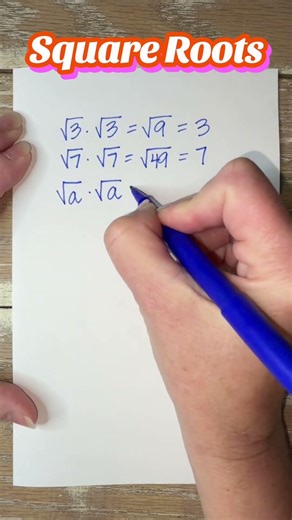 Square Roots
√3 · √3 = √9 = 3
√7 · √7 = √49 = 7
√a · √a